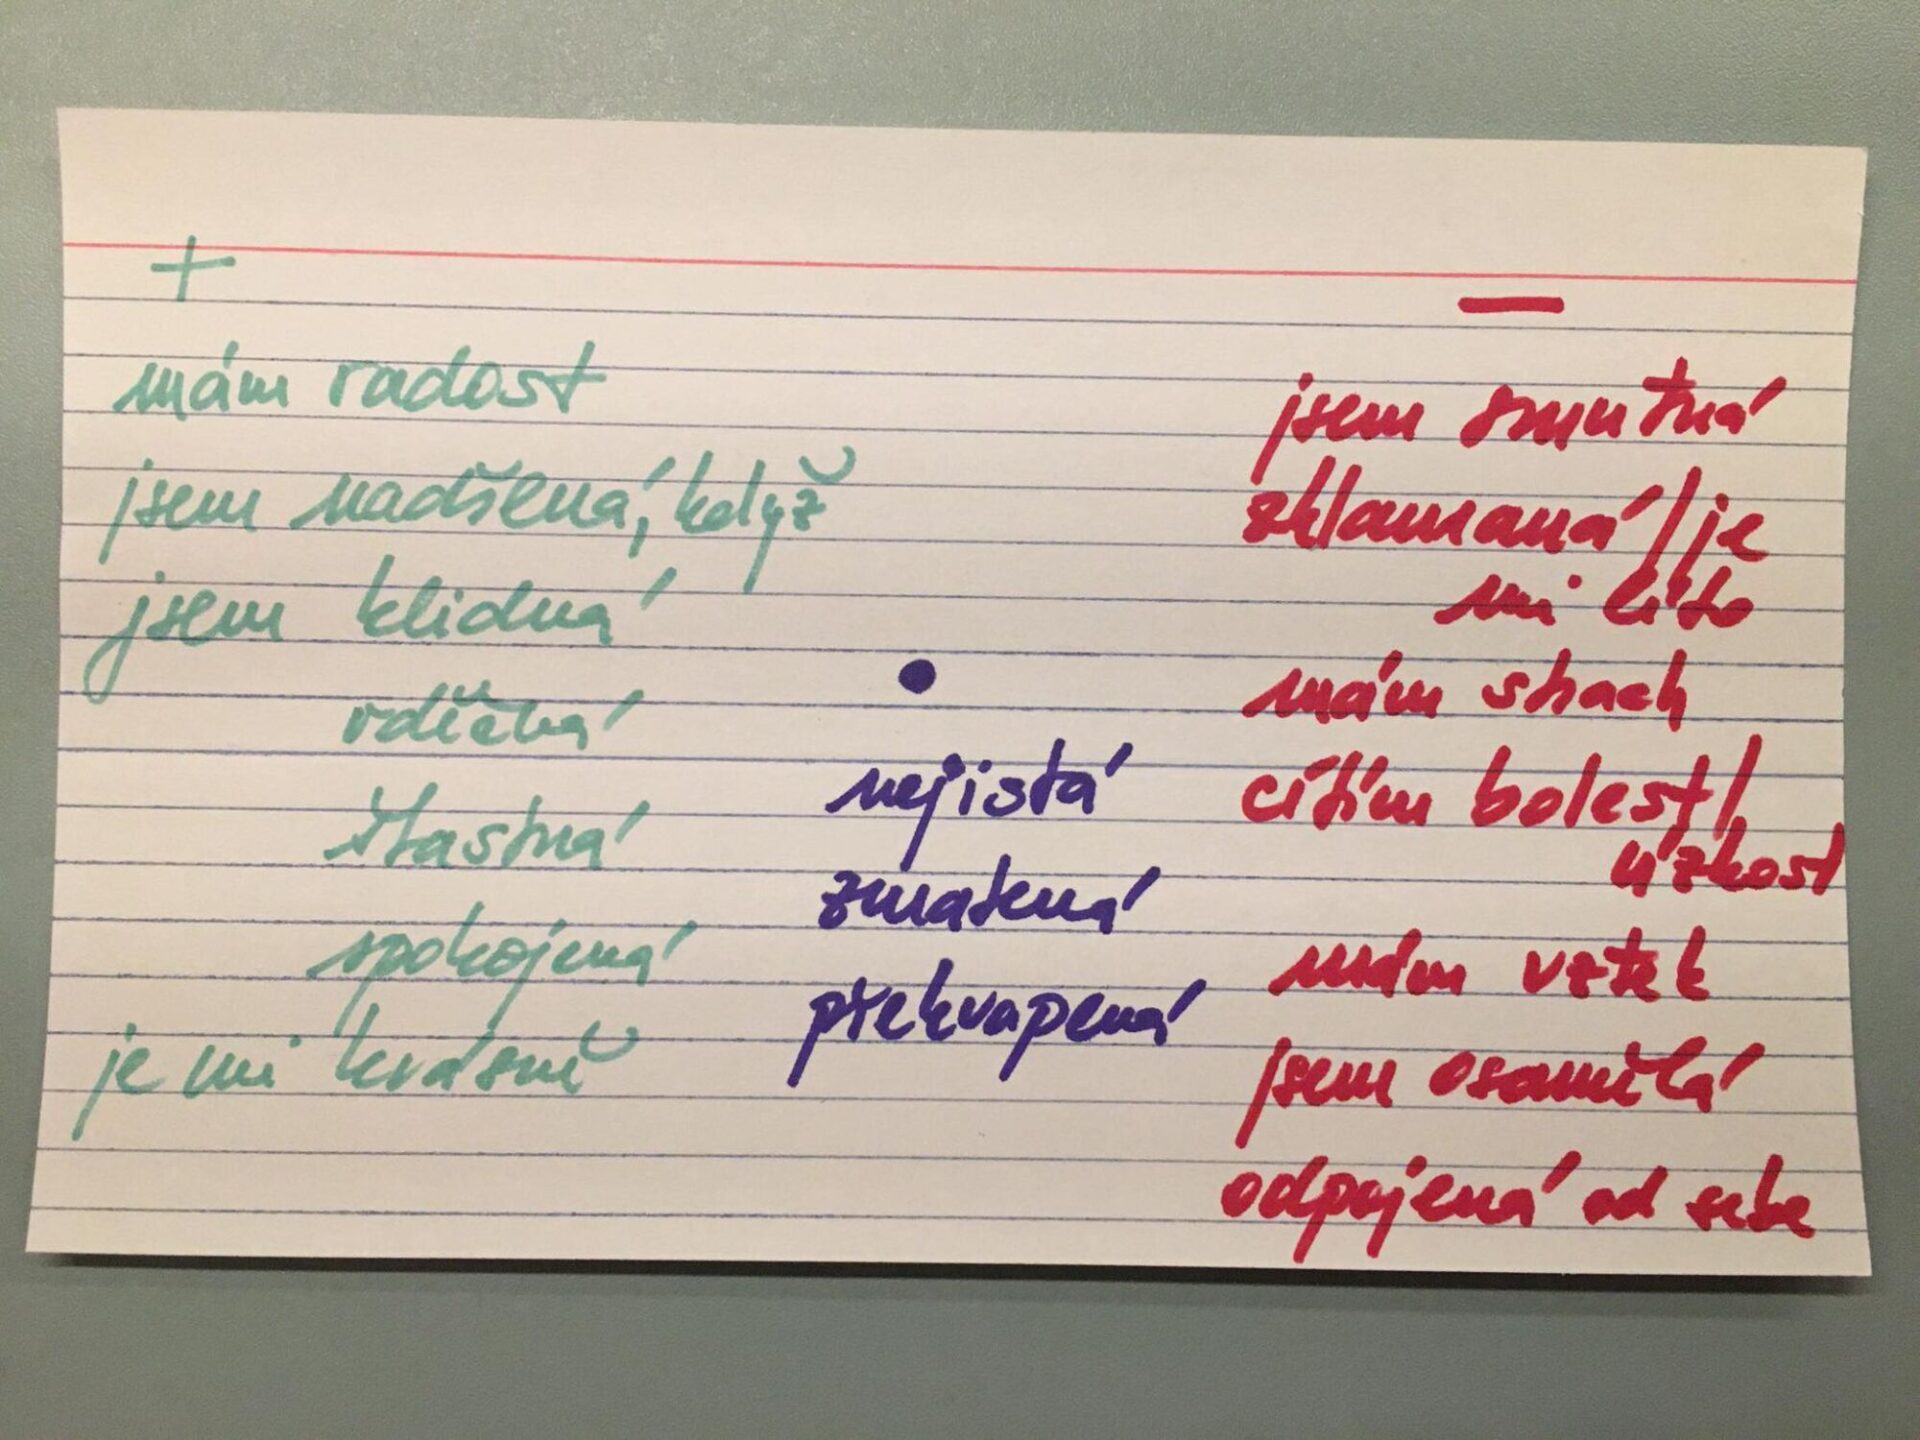 +
mám radost
jsem nadšená, když
jsem klidná
vděčná
šťastná
spokojená
je mi krásně
•
nejistá
zmatená
překvapená
—
jsem smutná
zklamaná / je
mi líto
mám strach
cítím bolest /
úzkost
mám vztek
jsem osamělá
odpojená od sebe